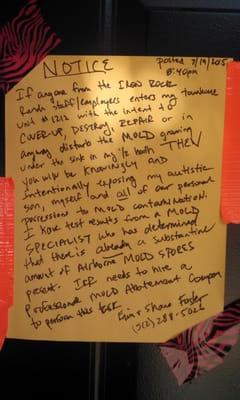 NOTICE
posted 7/19/2015
8:40pm
If anyone from the IRON ROCK
Ranch staff/employees enters my townhouse
unit # 1212 with the intent to
COVER-UP, DESTROY, REPAIR or in
anyway disturb the MOLD growing
under the sink in my 1/2 bath THEN
you will be knowingly and
intentionally exposing my autistic
son, myself and all of our personal
possessions to MOLD CONTAMINATION.
I have test results from a MOLD
SPECIALIST who has determined
that there is already a substantive
amount of Airborne MOLD SPORES
present. IRR needs to hire a
Professional MOLD Abatement Company
to perform this task.
Erin + Shane Foster
(512) 288-5026